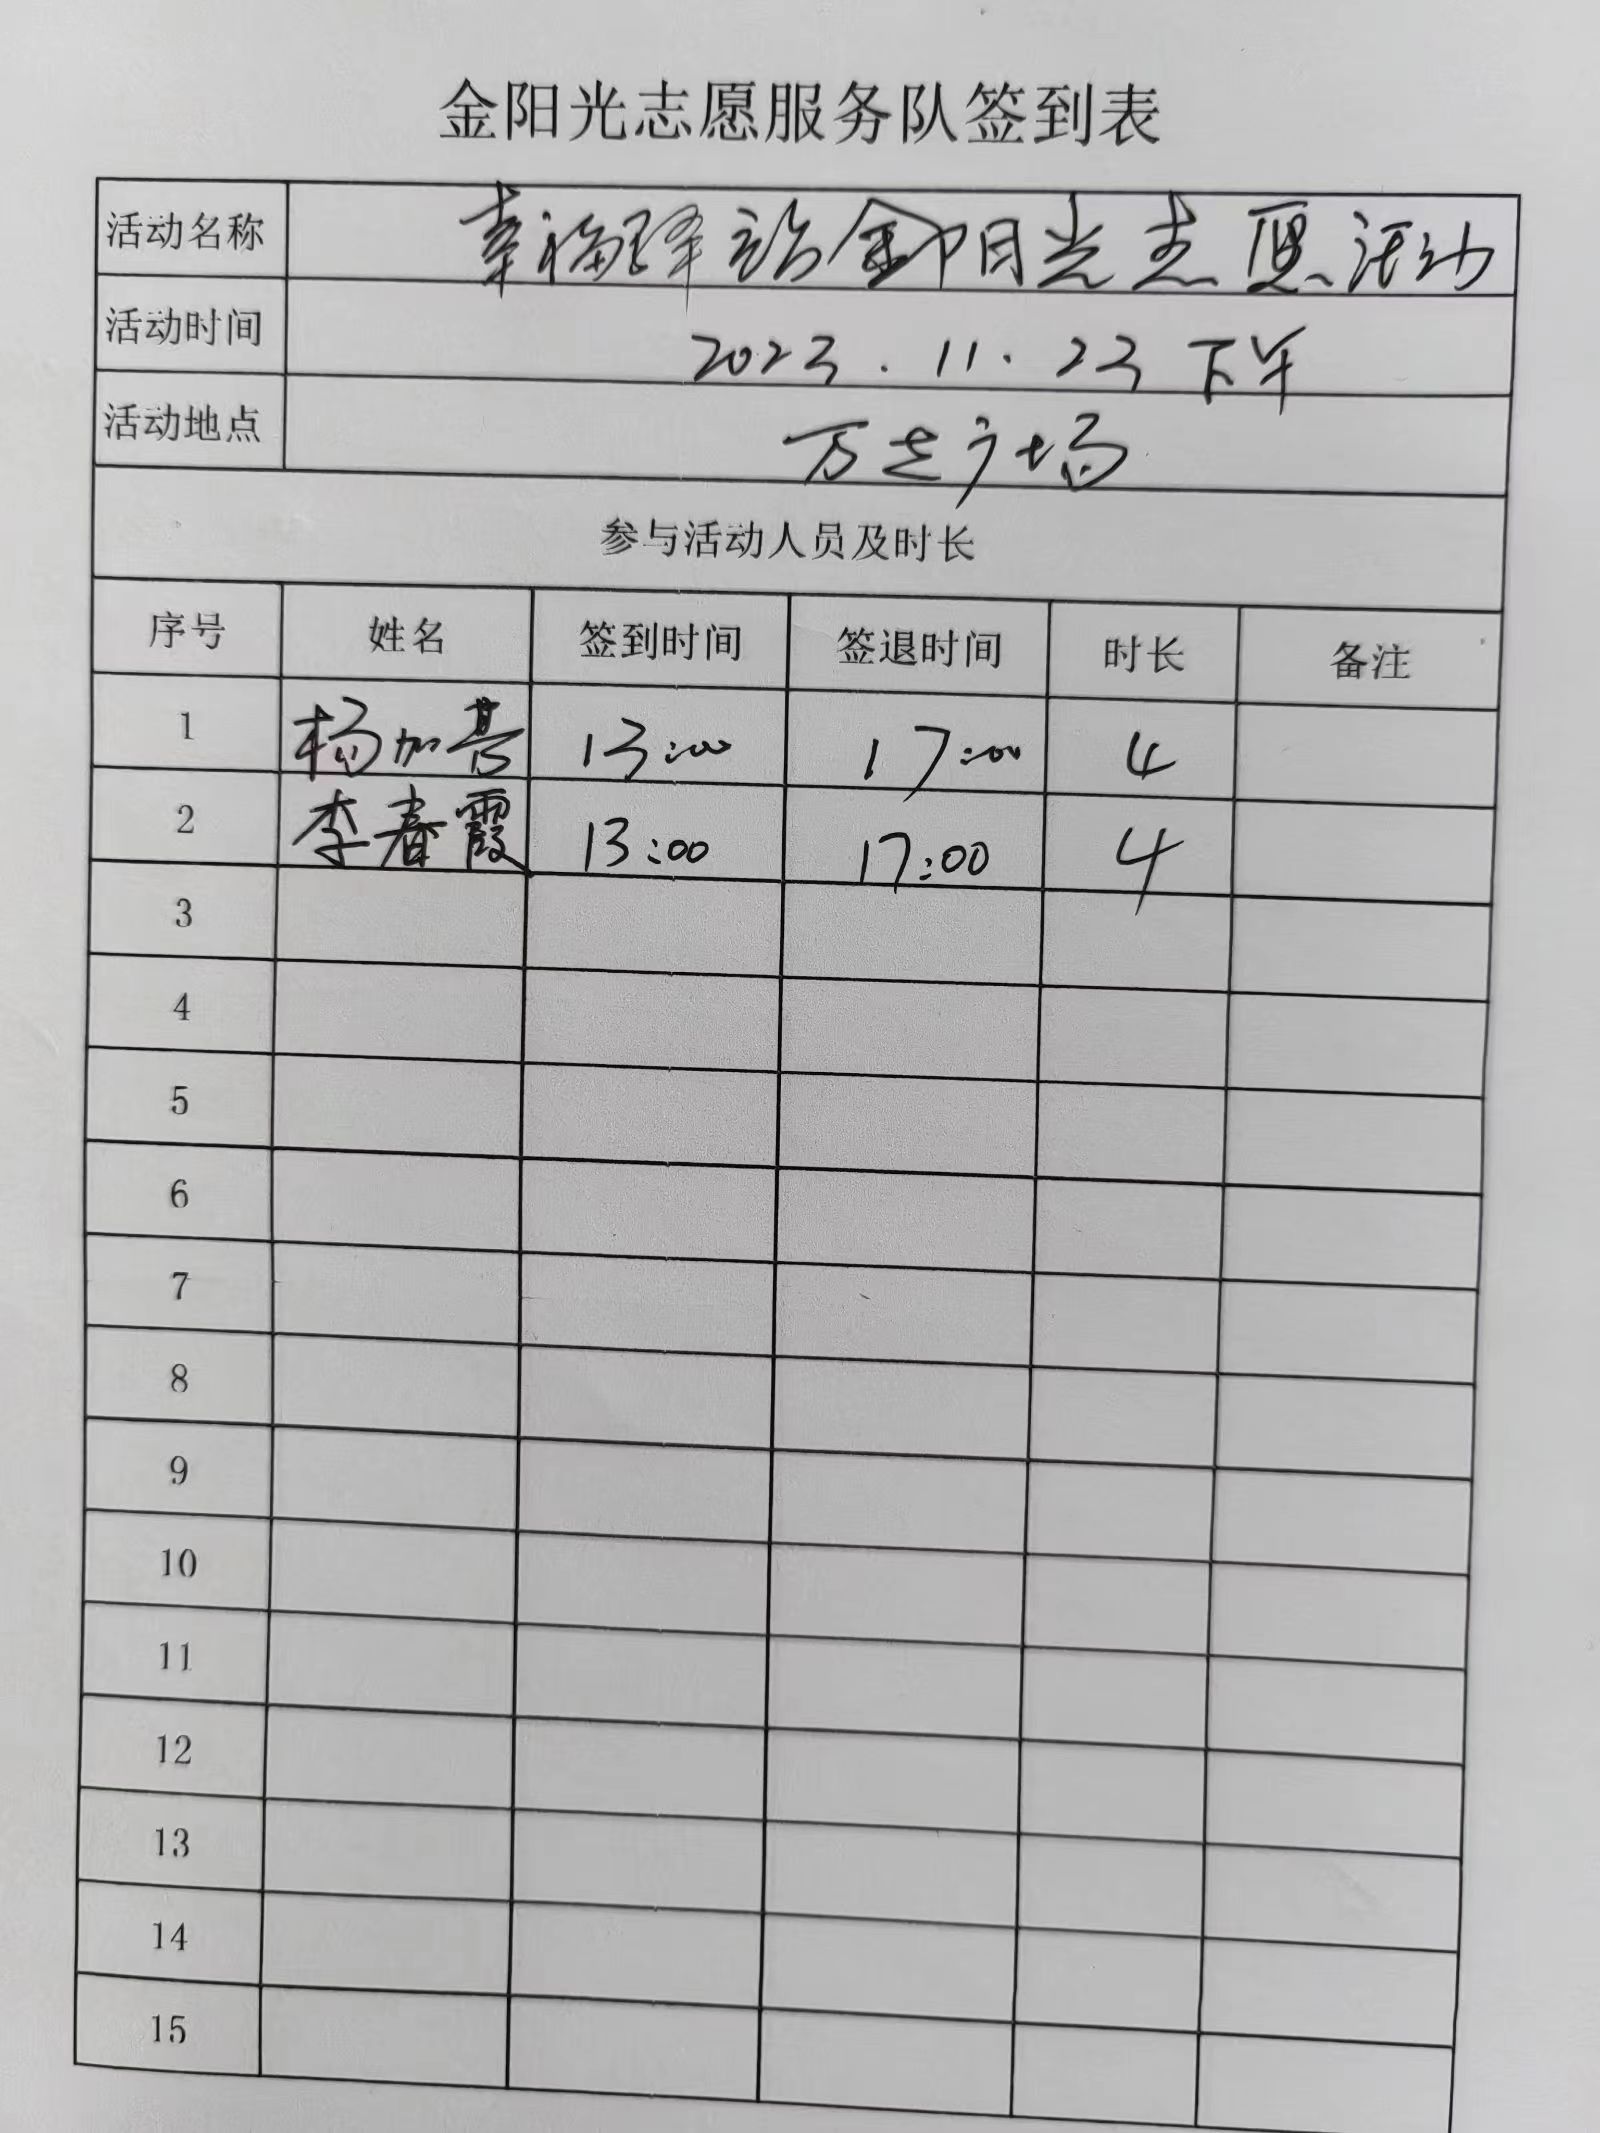 金阳光志愿服务队签到表
活动名称 幸福驿站金阳光志愿活动
活动时间 2023.11.23 下午
活动地点 万达广场
参与活动人员及时长
序号 姓名 签到时间 签退时间 时长 备注
1 杨加 13:00 17:00 4
2 李春霞 13:00 17:00 4
3
4
5
6
7
8
9
10
11
12
13
14
15